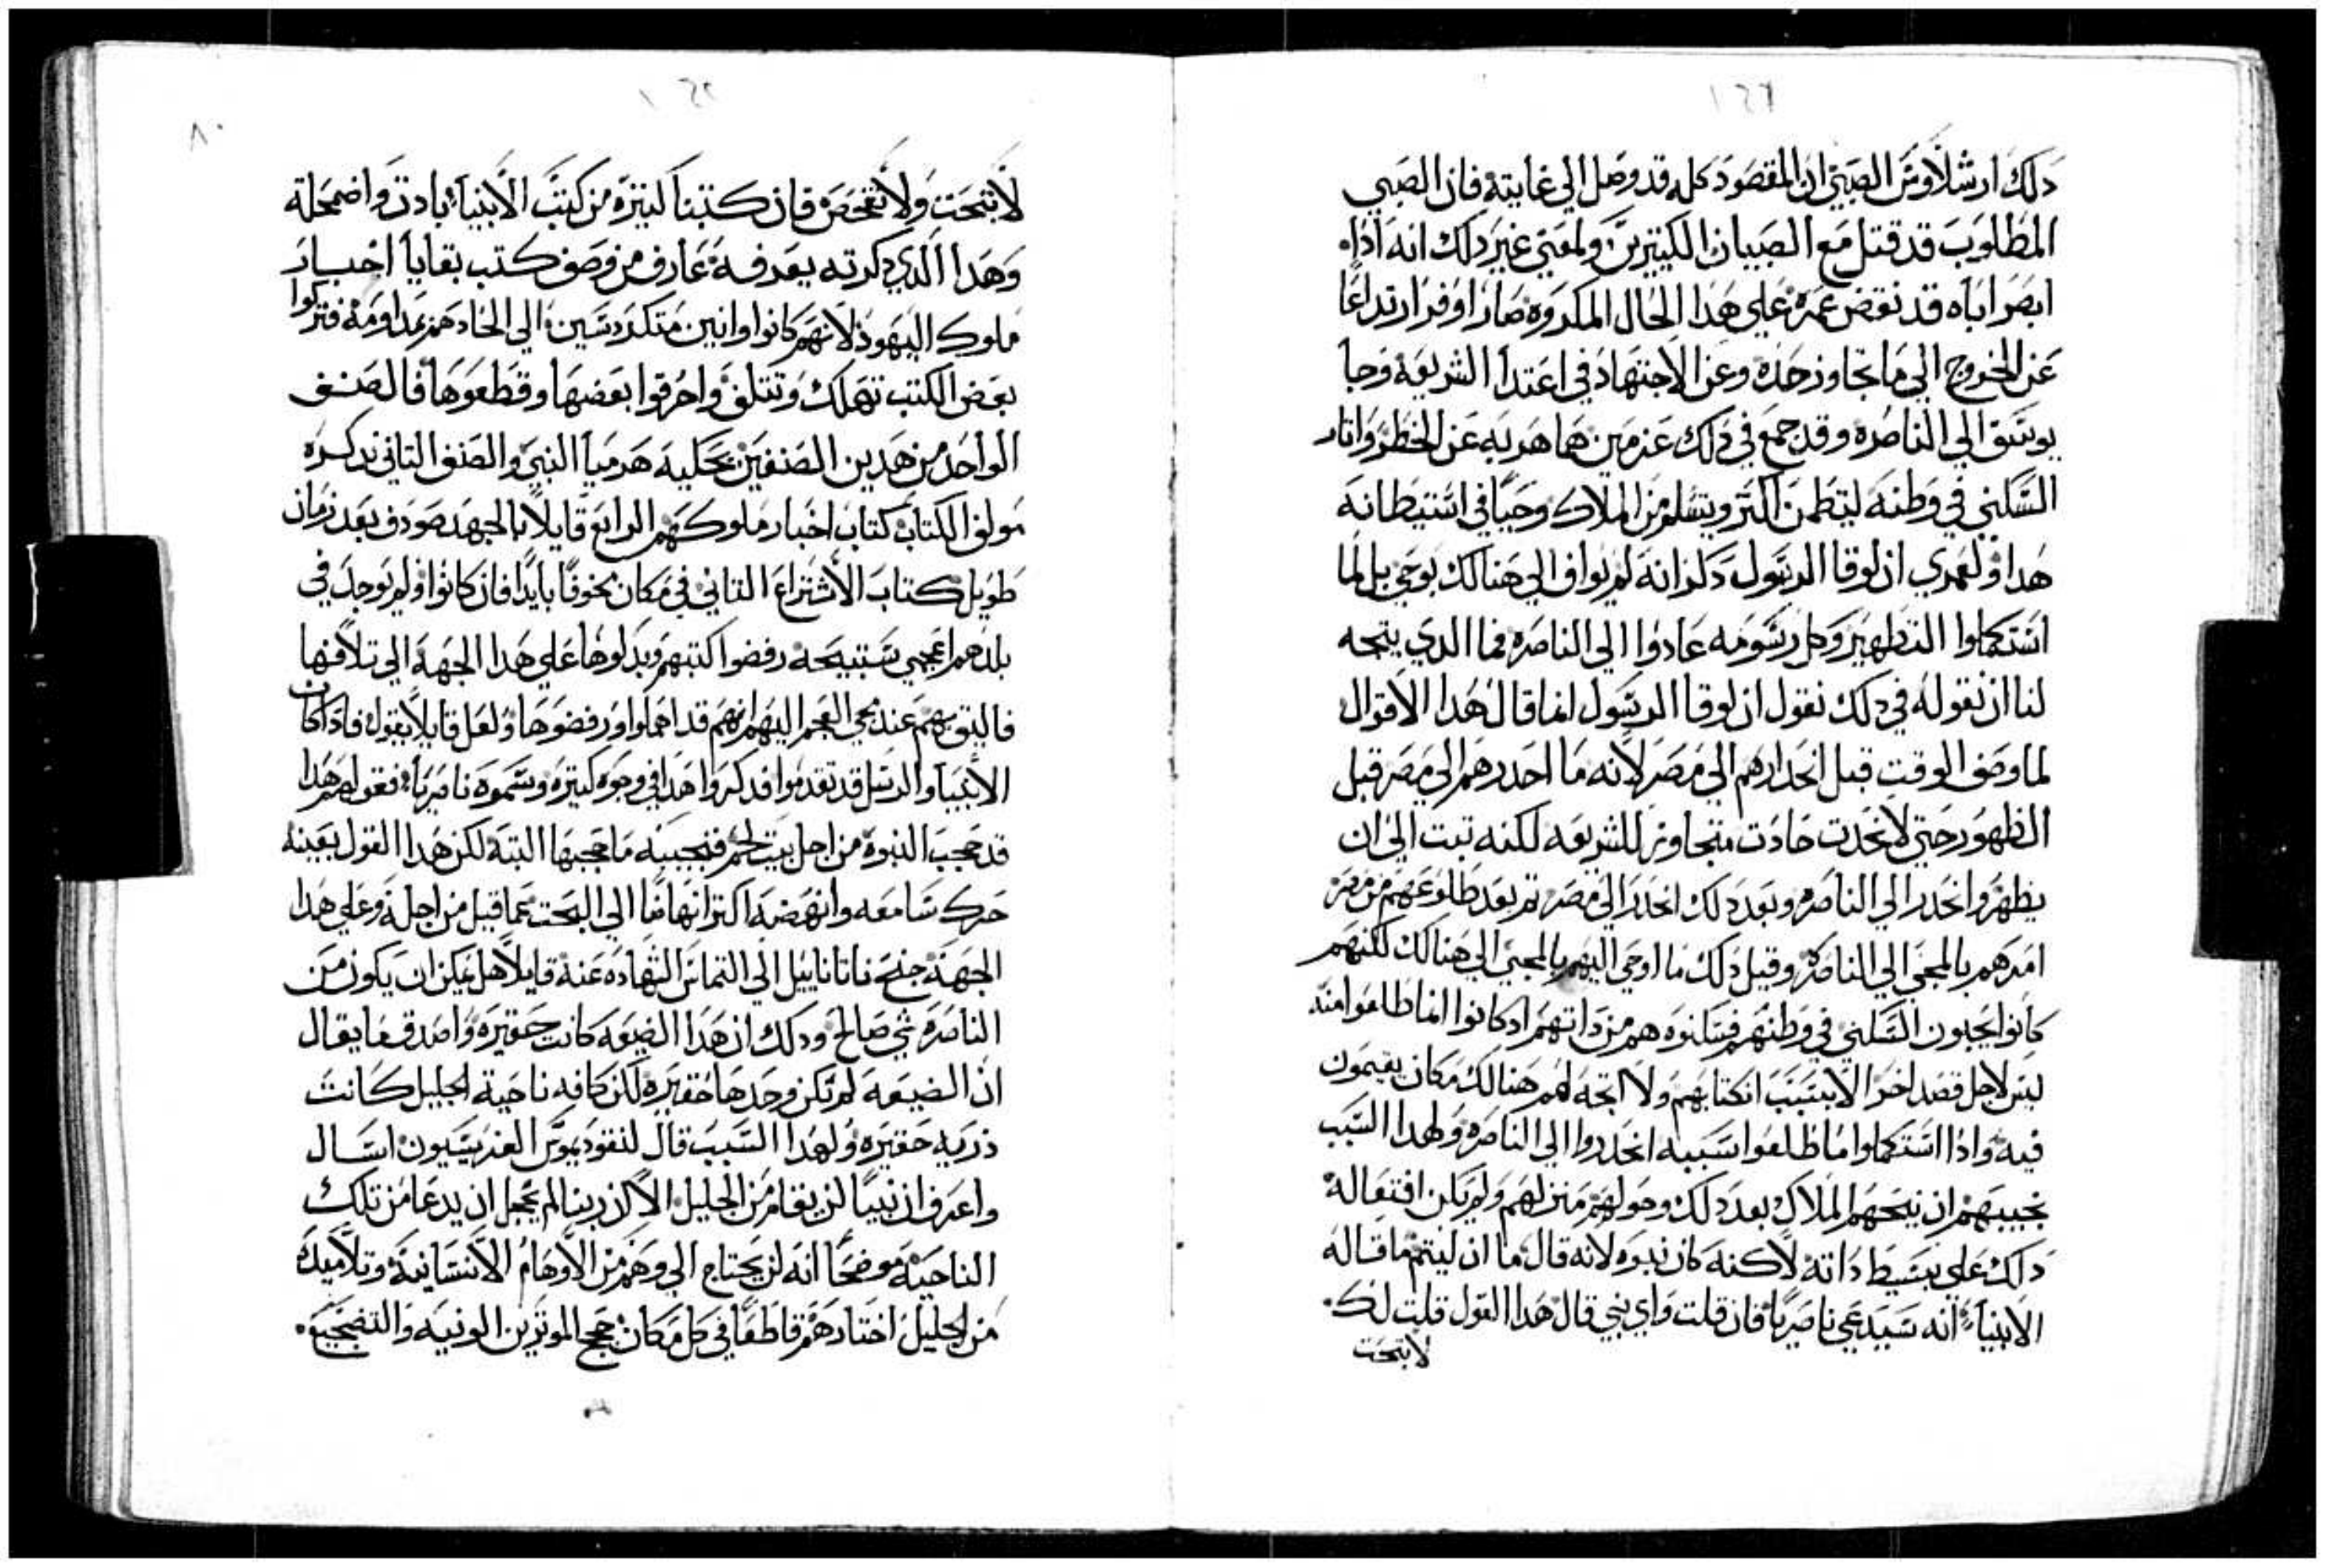 ١٤٦
دلك ارشلاوش الصبي ان المقصود كله قد وصل الي غايته فان الصبي
المطلوب قد قتل مع الصبيان الكتيرين ولمعني غير دلك انه اداه
ابصر اباه قد نقض عمره علي هدا الحال المكروه صار اوفر ارتداعًا
عن الخروج الي ما تجاوز حده وعن الاجتهاد في اعتدا الشريعة وجا
يوسف الي الناصره وقد جمع في دلك عزمين هما هربه عن الخطر وايثار
السكني في وطنه ليتطمن اكتر ويتسلم من الملاك وحيًا في استيطانه
هدا ولعمري ان لوقا الرسول دكر انه لم يواف الي هنالك بوحي بل لما
استكملوا التطهير وكل رسومه عادوا الي الناصره فما الدي يتجه
لنا ان نقوله في دلك نقول ان لوقا الرسول انما قال هدا الاقوال
لما وصف الوقت قبل انحدارهم الي مصر لانه ما احدرهم الي مصر قبل
الطهور حتي لا يحدت حادت متجاوز للشريعه لكنه تبت الي ان
يطهر وانحدر الي الناصره وبعد دلك انحدر الي مصر تم بعد طلوعهم من مصر
امرهم بالمجي الي الناصره وقبل دلك ما اوحي اليهم بالمجي الي هنالك لكنهم
كانوا يحبون السكني في وطنهم فسكنوه هم من داتهم ادكانوا انما طلعوا منه
ليس لاجل قصد اخر الا بسبب اكتتابهم ولا اتجه لهم هنالك مكان يقيمون
فيه وادا استكملوا ما طلعوا بسببه انحدروا الي الناصره ولهدا السبب
بحييهم ان نيحهم الملاك بعد دلك وحولهم منزلهم ولم يكن افتعاله
دلك علي بسيط داته لاكنه كان نبوه لانه قال ما ان ليتم ما قاله
الانبيا انه سيدعي ناصريًا فان قلت واي نبي قال هدا القول قلت لك
لا تبحت
١٤٥
٨٠
لا تبحت ولا تفحص فان كتبنا كتيره من كتب الانبيا بادت واضمحلة
وهدا الدي دكرته يعرفه عارف من وصف كتب بقايا اخبار
ملوك اليهود لانهم كانوا وانين متكردسين الي الحادهم بمداومة فتركوا
بعض الكتب تهلك وتتلف واحرقوا بعضها وقطعوها فالصنف
الواحد من هدين الصنفين يحكيه هرميا النبي والصنف التاني يدكره
مولف الكتاب كتاب اخبار ملوكهم الرابع قايلًا بالجهد صودف بعد زمان
طويل كتاب الاشتراع التاني في مكان مخوفًا بايدًا فان كانوا ولم يوجد في
بلدهم اعجمي يستبيحه رفضوا كتبهم وبدلوها علي هدا الجهة الي تلافها
فاليق بهم عند مجي العجم اليهم انهم قد اهملوا ورفضوها ولعل قايلًا يقول فاداكان
الانبيا والرسل قد تقدموا فدكروا هدا في وجوه كتيره وسموه ناصريًا فقولهم هدا
قد حجب النبوه من اجل بيت لحم فنجيبه ما حجبها البته لكن هدا القول بعينه
حرك سامعه وانهضه اكتر انهاضًا الي البحت عما قيل من اجله وعلي هدا
الجهة جنح ناتاناييل الي التماس الشهاده عنه قايلًا هل يمكن ان يكون من
الناصره شي صالح ودلك ان هدا الضيعه كانت حقيره واصدق ما يقال
ان الضيعه لم تكن وحدها حقيره لكن كافه ناحية الجليل كانت
ذريه حقيره ولهدا السبب قال لنقوديموس الفريسيون اسال
واعرف ان نبيًا لن يقام من الجليل الا ان ربنا لم يخجل ان يدعا من تلك
الناحية موضحًا انه لن يحتاج الي وهم من الاوهام الانسانية وتلاميده
من الجليل اختارهم قاطعًا في كل مكان حجج الموثرين الونيه والتضجيع